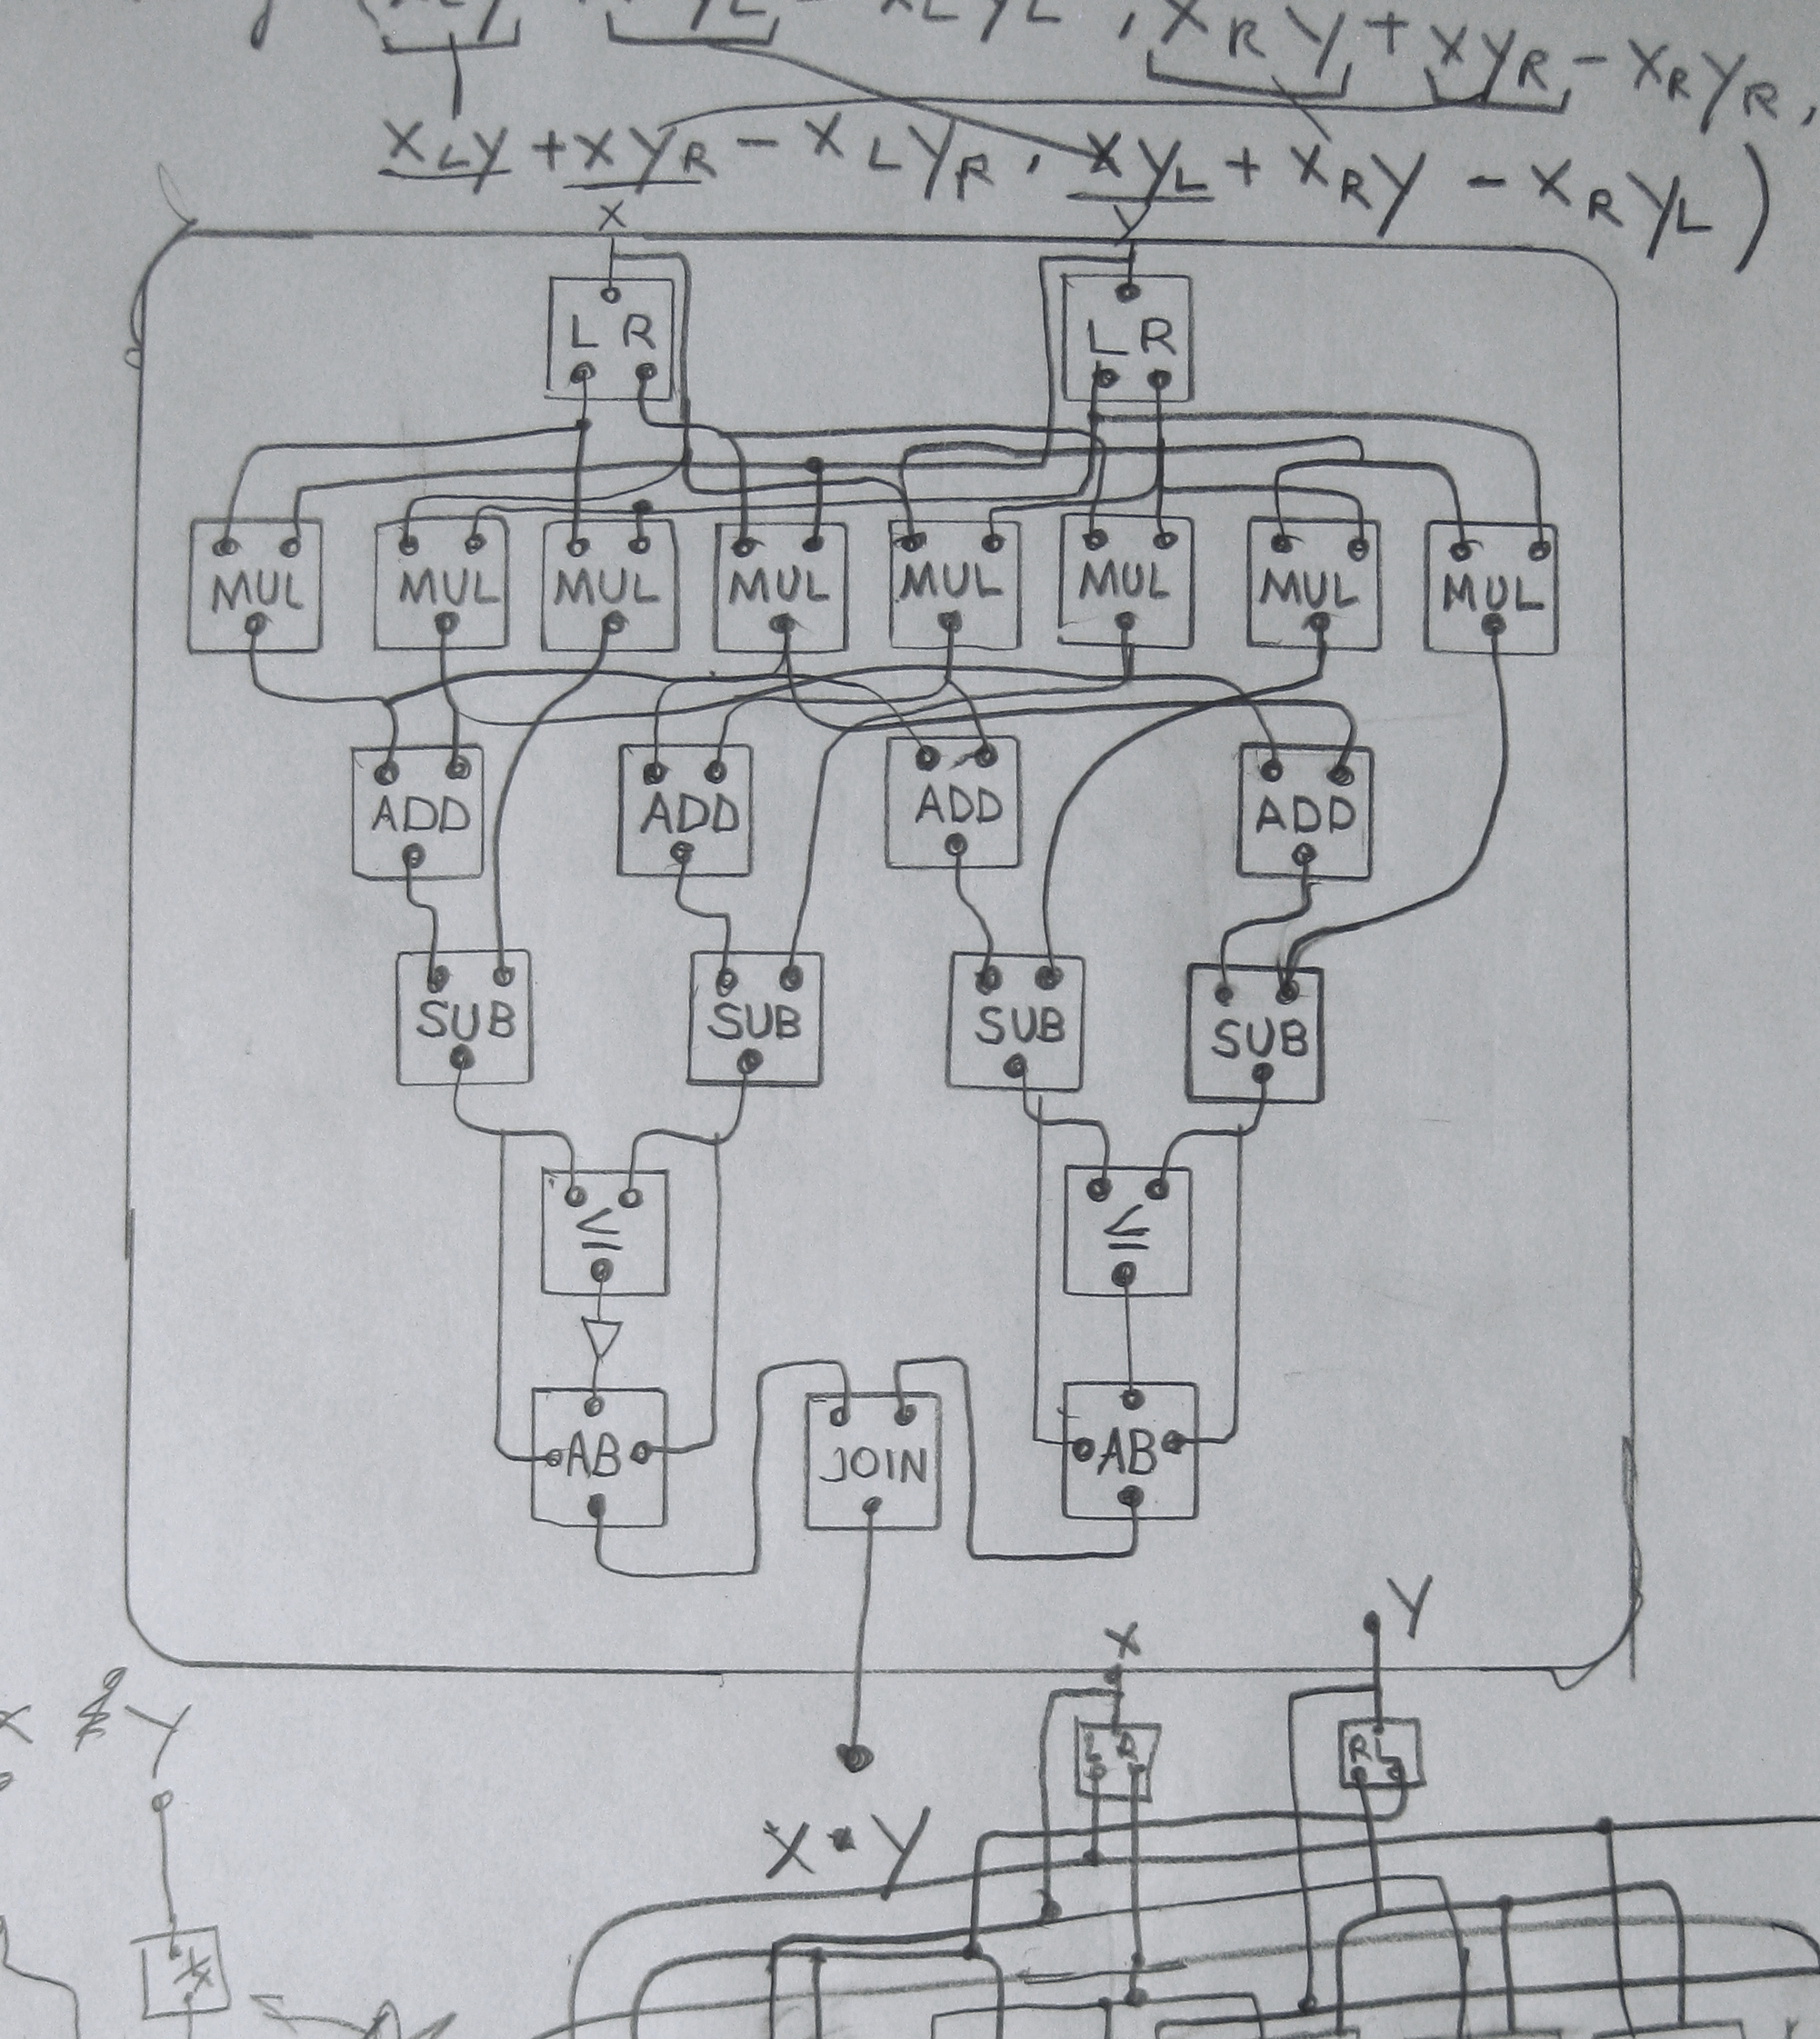 x_L y x y_L - x_L y_L , x_R y + x y_R - x_R y_R ,
x_L y + x y_R - x_L y_R , x y_L + x_R y - x_R y_L )
X Y
L R L R
MUL MUL MUL MUL MUL MUL MUL MUL
ADD ADD ADD ADD
SUB SUB SUB SUB
≤ ≤
AB JOIN AB
X Y
X Y
L R R L
X · Y
*